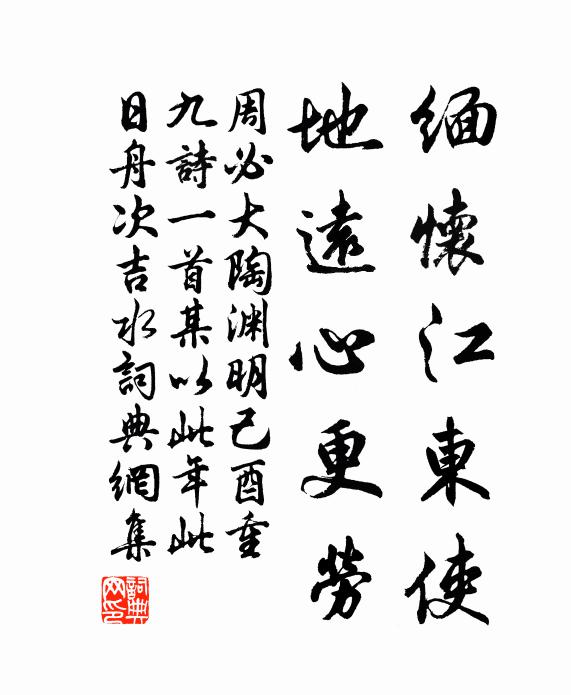 緬懷江東使
地遠心更勞
周必大陶淵明己酉重
九詩一首某以此年此
日舟次吉水詞典網集
詞典
网印